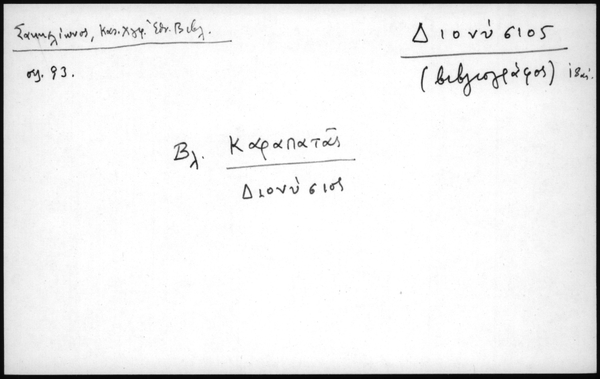 Σακκελίωνος, Κατ. Χγφ. Ἐθν. Βιβλ.
σελ. 93.
Διονύσιος
(βιβλιογράφος)
Βλ. Καραπατᾶς
Διονύσιος